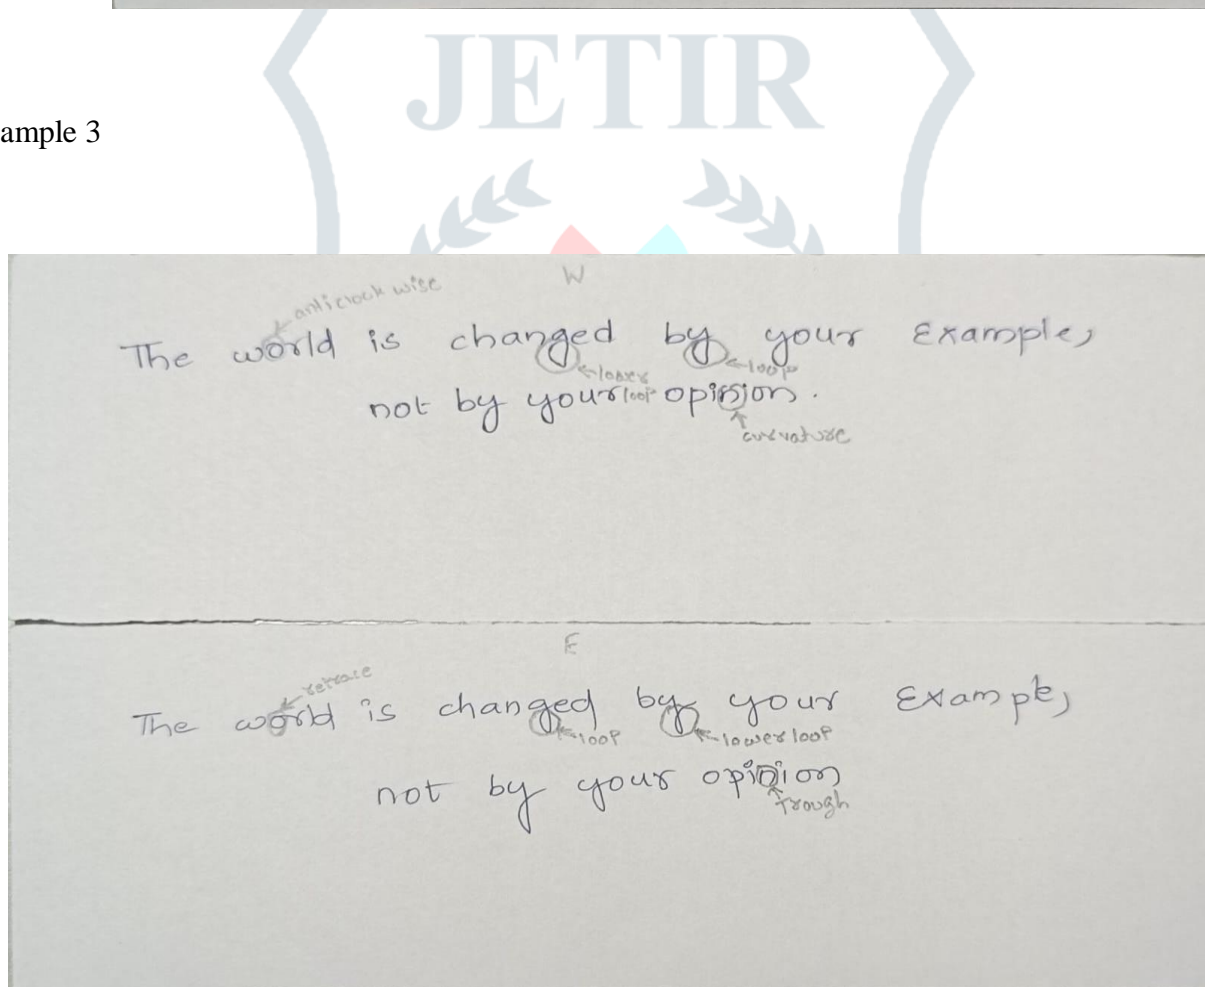 JETIR
ample 3
W
anticlockwise
The world is changed by your Example,
lower loop
loop
not by your opinion.
curvature
E
retrace
The world is changed by your Example,
loop
lower loop
not by your opinion
trough